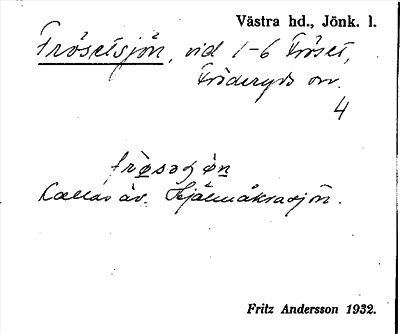 Västra hd., Jönk. l.
Frösetsjön, vid 1-6 Fröset,
Fröderyds sn.
4
Kallas äv. Hjälmåkrasjön.
Fritz Andersson 1932.